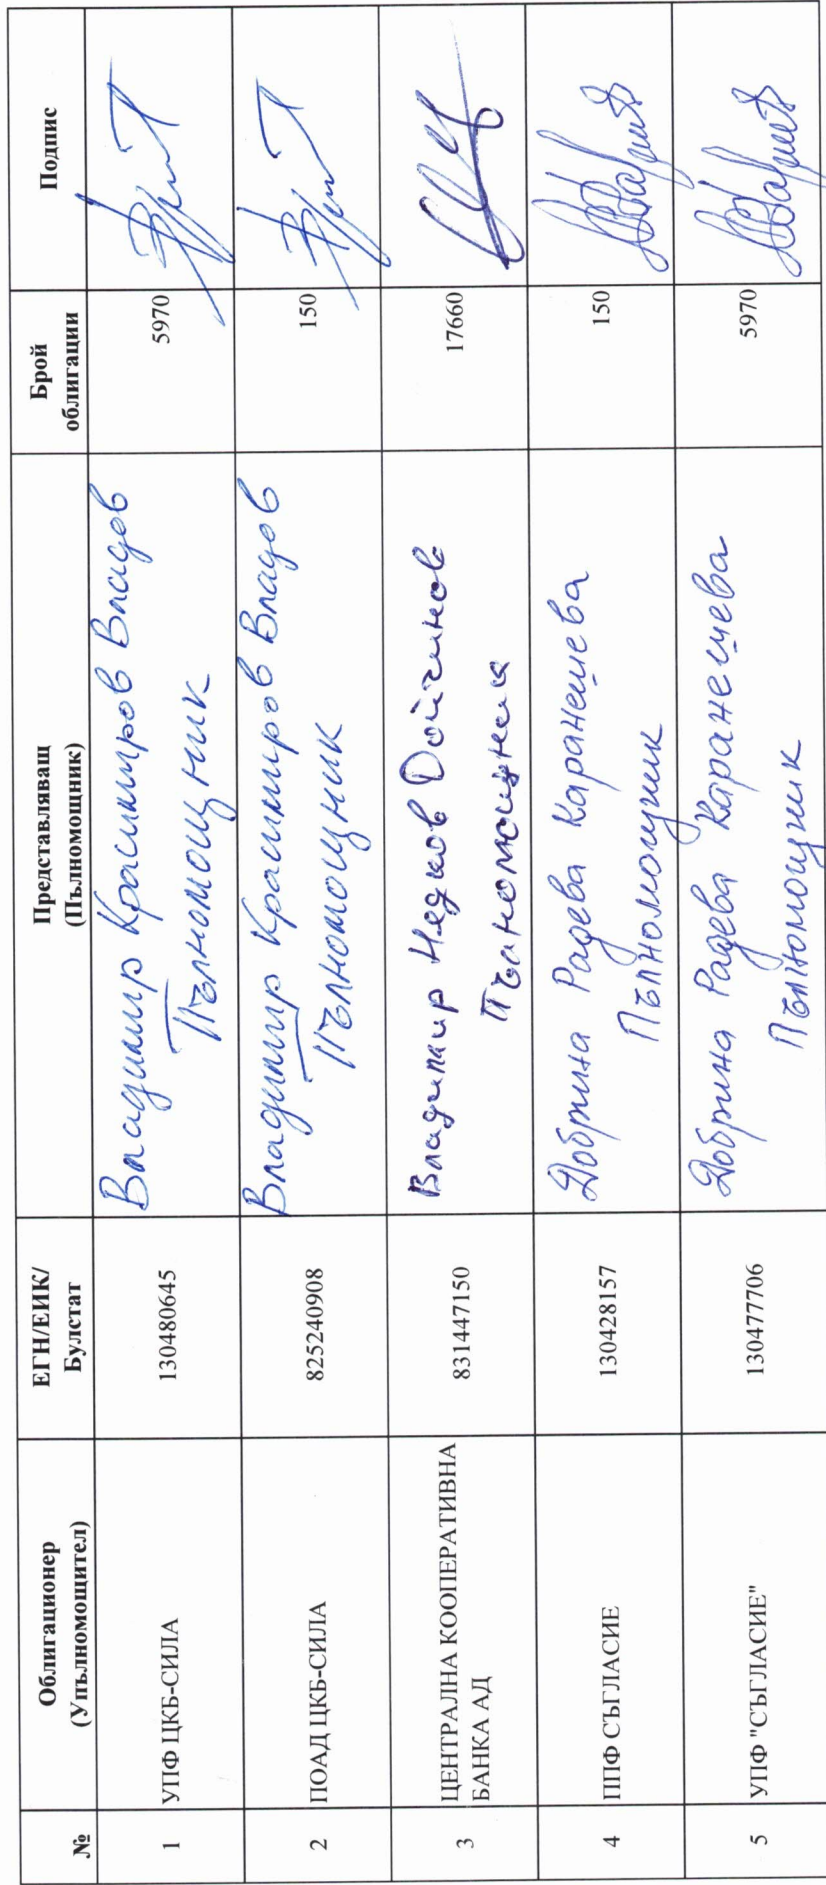 № Облигационер (Упълномощител) ЕГН/ЕИК/ Булстат Представляващ (Пълномощник) Брой облигации Подпис
1 УПФ ЦКБ-СИЛА 130480645 Владимир Красимиров Владов 5970
Пълномощник
2 ПОАД ЦКБ-СИЛА 825240908 Владимир Красимиров Владов 150
Пълномощник
3 ЦЕНТРАЛНА КООПЕРАТИВНА БАНКА АД 831447150 Владимир Недков Дойчинов 17660
Пълномощник
4 ППФ СЪГЛАСИЕ 130428157 Добрина Радева Каранешева 150
Пълномощник
5 УПФ "СЪГЛАСИЕ" 130477706 Добрина Радева Каранешева 5970
Пълномощник